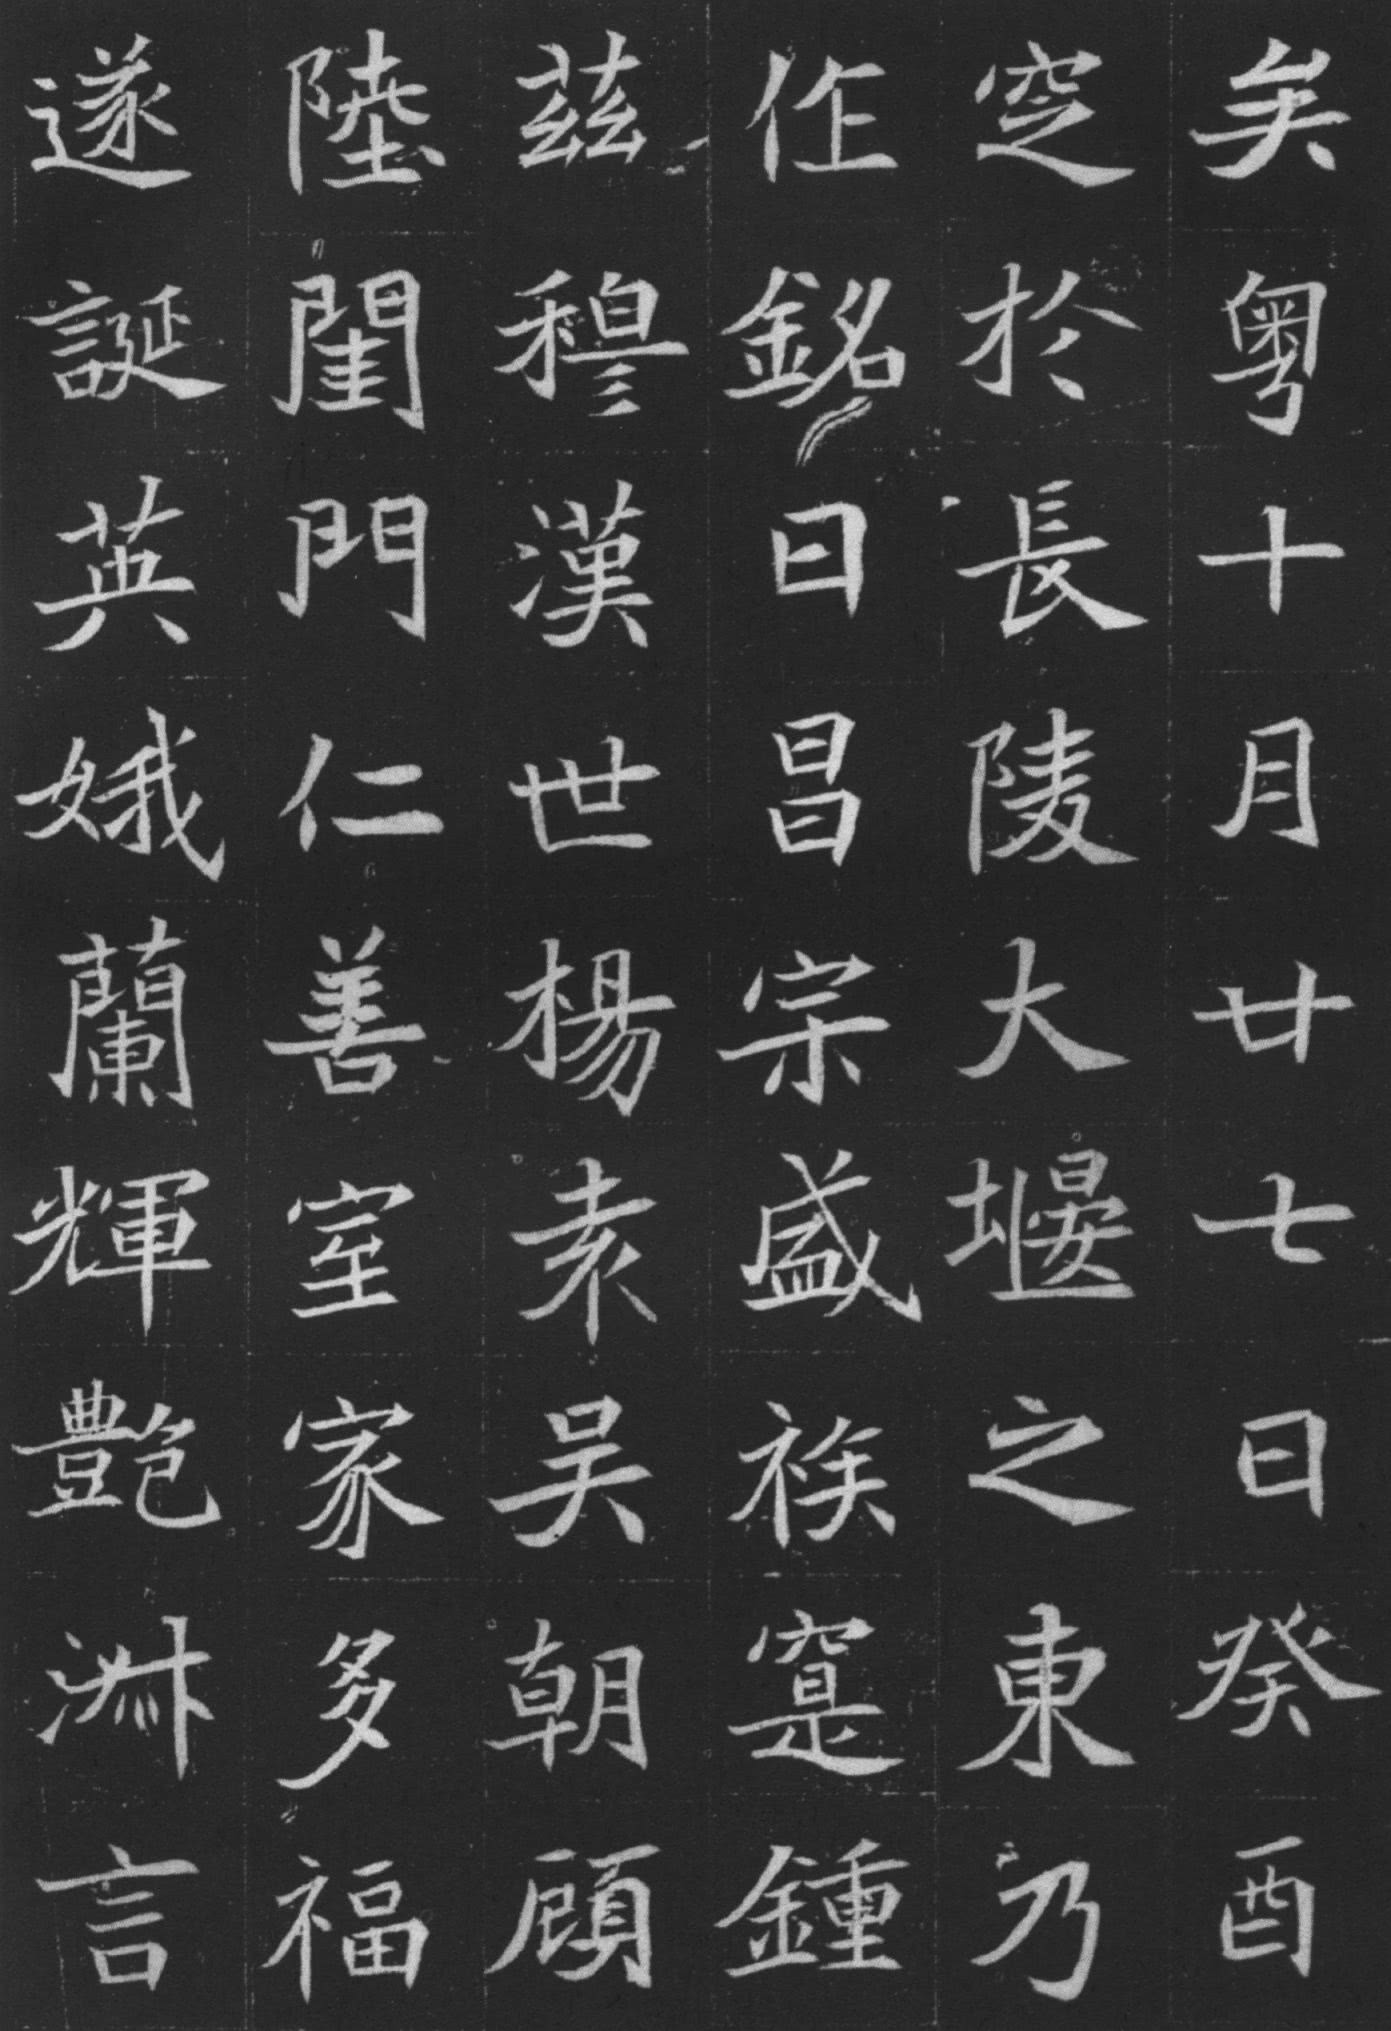 矣粤十月廿七日癸酉
窆於長陵大堰之東乃
作銘曰昌宗盛族寔鍾
兹穆漢世楊袁吴朝顧
陸閨門仁善室家多福
遂誕英娥蘭輝艷淋言